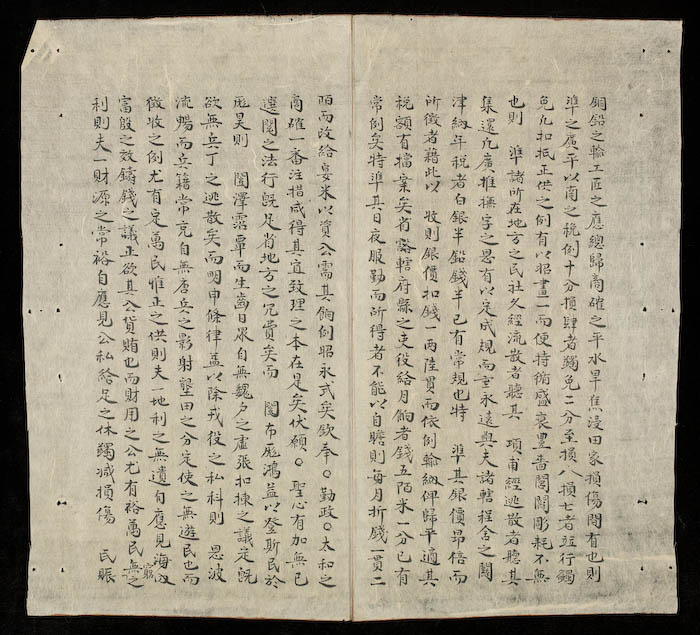 銅鉛之輸工匠之應總歸商確之平水旱焦浸田家損傷間有也則
準之廣平以南之稅例十分損肆者蠲免二分至損八損七者並行蠲
免凡扣抵正供之例有以招畫一而便持循盛衰豐嗇閭閻彫耗不無
也則　準諸所在地方之民社久經流散者聽其　項甫經逃散者聽其
集還凡廣推撫字之恩有以定成規而垂永遠與夫諸轄程舍之關
津納年稅者白銀半鉛錢半已有常規也特　準其銀價昂倍而
所徵者藉此以　收則銀價扣錢一兩陸貫而依例輸納俾歸平適其
稅額有檔案矣省豁轄府縣之吏役給月餉者錢五陌米一分已有
常例矣特準其日夜服勤而所得者不能以自贍則每月折錢一貫二
陌而改給晏米以資公需其餉例昭永式矣欽奉。勤政。太和之
商確一番注措咸得其宜致理之本在是矣伏願。聖心有加無已
邊閫之法行旣足省地方之冗費矣而　閫布厖鴻益以登斯民於
厖昊則　闓澤霑覃而生齒日眾自無魏戶之虛張扣揀之議定旣
欲無兵丁之逃散矣而明申條律益以除戎役之私科則　恩波
流暢而兵籍常充自無唐兵之影射墾田之分定使之無遊民也而
徵收之例尤有定萬民惟正之供則夫一地利之無遺自應見海內
富殷之效鑄錢之議正欲其公貨賄也而財用之公尤有裕萬民無窮之
利則夫一財源之常裕自應見公私給足之休蠲減損傷　民賑